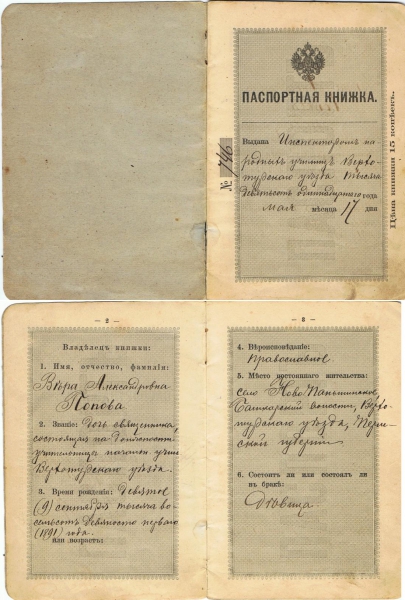 ПАСПОРТНАЯ КНИЖКА.
Выдана Инспекторомъ на-
родныхъ училищъ Верхо-
турскаго уѣзда Тысяча
девятьсотъ года
мая мѣсяца 17 дня
№ 746
Цѣна книжки 15 копѣекъ.
— 2 —
Владѣлецъ книжки:
1. Имя, отчество, фамилія:
Вѣра Александровна
Попова
2. Званіе: Дочь священника,
состоящая на должности
учительницы начальн. учил.
Верхотурскаго уѣзда.
3. Время рожденія: девятое
(9) сентября тысяча во-
семьсотъ девяносто перваго
(1891) года.
или возрастъ:
— 3 —
4. Вѣроисповѣданіе:
Православное.
5. Мѣсто постояннаго жительства:
село Ново-Паньшинское
Башкарской волости, Верхо-
турскаго уѣзда, Перм-
ской губерніи
6. Состоитъ ли или состоялъ ли
въ бракѣ:
Дѣвица.